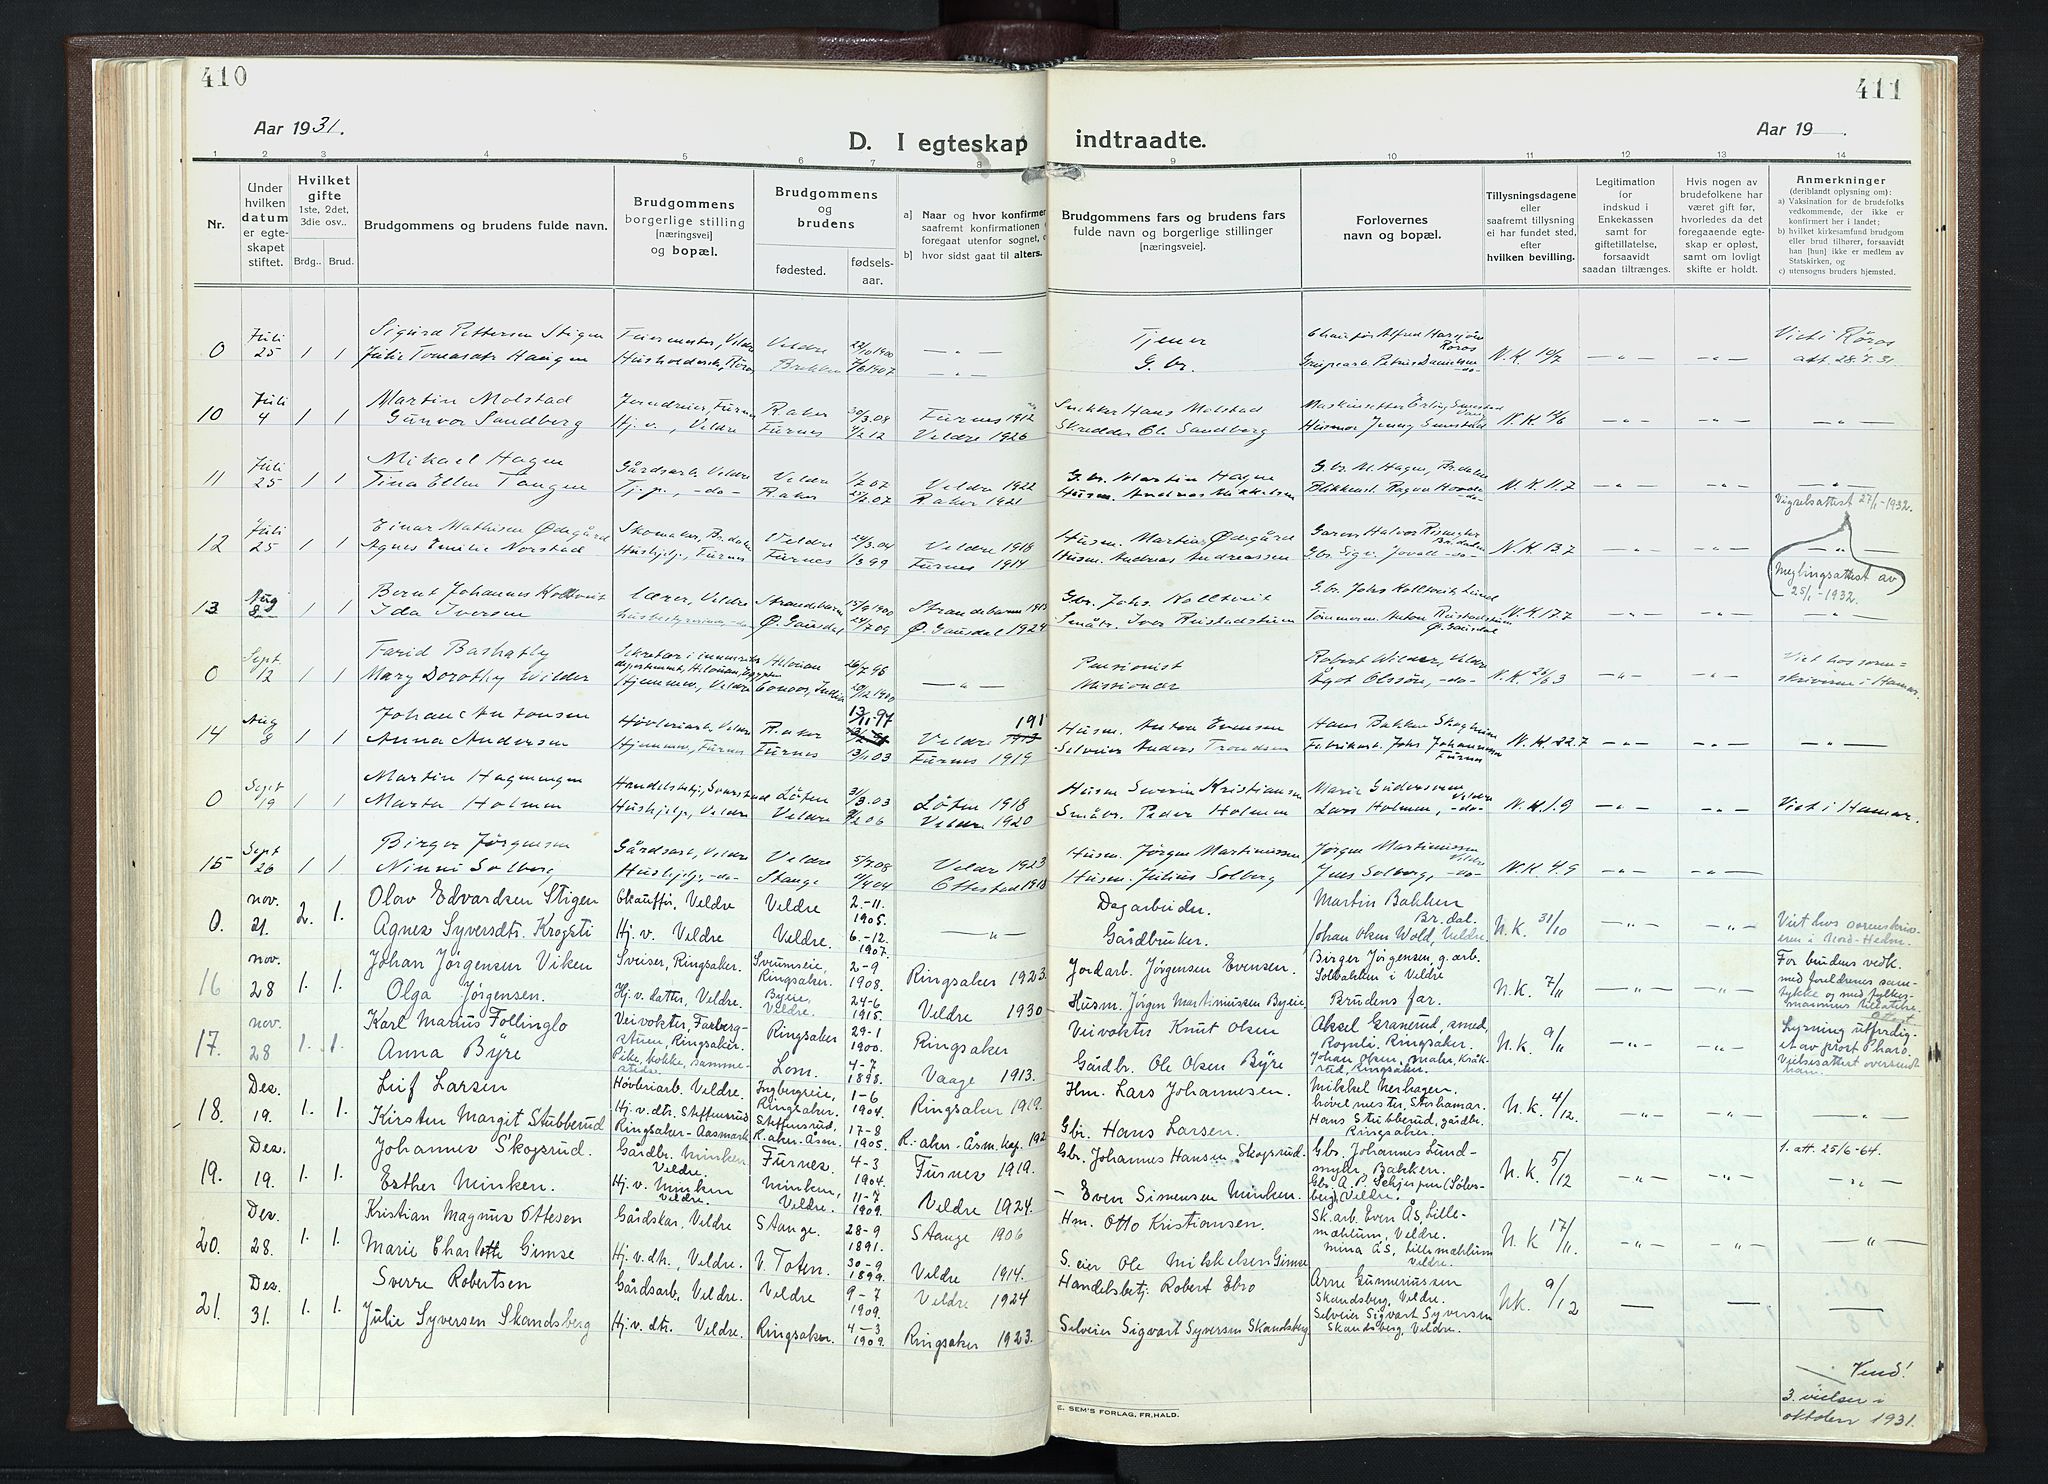 410
411
Aar 1931.
D. I egteskap indtraadte.
Aar 19 .
1 2 3 4 5 6 7 8 9 10 11 12 13 14
Nr.
Under hvilken datum er egteskapet stiftet.
Hvilket gifte
1ste, 2det, 3die osv..
Brdg.. Brud.
Brudgommens og brudens fulde navn.
Brudgommens borgerlige stilling [næringsvei] og bopæl.
Brudgommens og brudens
fødested.
fødselsaar.
a) Naar og hvor konfirmer
saafremt konfirmationen
foregaat utenfor sognet,
b) hvor sidst gaat til alters.
Brudgommens fars og brudens fars
fulde navn og borgerlige stillinger
[næringsveie].
Forlovernes
navn og bopæl.
Tillysningsdagene
eller
saafremt tillysning
ei har fundet sted,
efter
hvilken bevilling.
Legitimation
for
indskud i
Enkekassen
samt for
giftetillatelse,
forsaavidt
saadan tiltrænges.
Hvis nogen av
brudefolkene har
været gift før,
hvorledes da det
foregaaende egteskap er opløst,
samt om lovligt
skifte er holdt.
Anmerkninger
(deriblandt oplysning om):
a) Vaksination for de brudefolks
vedkommende, der ikke er
konfirmert her i landet;
b) hvilket kirkesamfund brudgom
eller brud tilhører, forsaavidt
han [hun] ikke er medlem av
Statskirken, og
c) utensogns bruders hjemsted.
0 Juli 25 1 1 Sigurd Pettersen Stigen Feiermester, Veldre Veldre 22/10 1900 — " — Tjener Chaufför Alfred Røros Viet i Røros
Julie Tomasdtr Haugen Husholderske, Røros Brekken 7/6 1907 — " — G.br. Petrus Danielsen -do- N.K. 10/7 — " — — " — att 28.7.31.
10 Juli 4 1 1 Martin Molstad Furnes R.aker 30/3.08 Furnes 1912 Snekker Hans Molstad Maskinsetter Erling
Gunvor Sandberg Hj.v., Veldre Furnes 4/2 12 Veldre 1926 Skredder Ol. Sandberg Husmor Jenny N.K. 14/6 — " — — " — — " —
11 Juli 25 1 1 Mikael Hagen Gårdsarb. Veldre Veldre 1/7.07 Veldre 1922 G.br. Martin Hagen G.br. M. Hagen, Br.dalen
Tina Ellen Tangen Tj.p., -do- R.aker 27/2.07 R.aker 1921 Husm. Andreas Mikkelsen Blikkensl. Ragnv. -do- N.K. 11.7 — " — — " — — " —
Vigselsattest 27/1-1932.
12 Juli 25 1 1 Einar Mathisen Ødegård Skomaker, Br.dalen Veldre 24/3.04 Veldre 1918 Husm. Martin Ødegård Garver Halvor Br.dalen
Agnes Emilie Norstad Hushjelp, Furnes Furnes 1/3 99 Furnes 1914 Husm. Andreas Andreassen G.br. Sigv. Jovall -do- N.K. 13.7 — " — — " — — " —
Meglingsattest av
25/1-1932.
13 Aug 8 1 1 Bernt Johannes Kolltveit Lærer, Veldre Strandebarm 15/9 1900 Strandebarm 1915 Gbr. Johs. Kolltveit G.br. Johs Kolltveit
Ida Iversen Husbestyrerinne -do- Ø. Gausdal 24/7.09 Ø. Gausdal 1924 Småbr. Iver Rustadstuen Tømmerm. Anton Rustadstuen Ø. Gausdal N.K. 17.7 — " — — " — — " —
0 Sept. 12 1 1 Farid Bashatly Sekretær i departement, Helouan, Egypten Helouan 26/7 96 Pensionist Robert Wilder, Veldre Viet hos soren=
Mary Dorothy Wilder Hjemmev, Veldre 1900 — " — Missionær Ågot Olssøn, -do- N.K. 21/6 3 — " — — " — skriveren i Hamar.
14 Aug 8 1 1 Johan Antonsen Høvleriarb. Veldre R.aker 13/11 97 Veldre 1913 191 Husm. Anton Evensen Hans Bakken
Anna Andersen Hjemmev, Furnes Furnes 13/1 03 Furnes 1919 Selveier Anders Trondsen Fabrikarb. Johs Johannessen Furnes N.K. 22.7 — " — — " — — " —
0 Sept 19 1 1 Martin Hagenengen Handelsbtj, Løten 31/3.03 Løten 1918 Husm Severin Kristiansen Marie Gudersen Veldre
Marta Holmen Hushjelp, Veldre Veldre 9/2 06 Veldre 1920 Småbr. Peder Holmen Lars Holmen, -do- N.K. 1.9 — " — — " — Viet i Hamar.
15 Sept 26 1 1 Birger Jørgensen Gårdsarb, Veldre Veldre 5/7.08 Veldre 1923 Husm. Jørgen Martinussen Jørgen Martinussen Veldre
Ninni Solberg Hushjelp, -do- Stange 4/4 04 Ottestad 1918 Husm. Julius Solberg Jul. Solberg, -do- N.K. 4.9 — " — — " — — " —
0. nov. 21. 2. 1. Olav Edvardsen Stigen Chauffør, Veldre Veldre 2.-11. 1905. Dagarbeider. Martin Bakken Br.dal. Viet hos sorenskriv-
Agnes Syversdtr. Krogsti Hj.v. Veldre Veldre. 6.-12. 1907. — " — Gårdbruker. Johan Olsen Wold, Veldre N.K. 31/10 — " — — " — eren i Nord-Hedm.
16 nov. 28 1. 1. Johan Jørgensen Viken Sveiser, Ringsaker. Sveumseie, Ringsaker. 2-9 1908. Ringsaker 1923. Jordarb. Jørgensen Evensen. Birger Jørgensen, g.arb. Solbakken i Veldre
Olga Jørgensen. Hj.v. datter, Veldre. Byeie, Veldre. 24-6 1915. Veldre 1930 Husm. Jørgen Martinussen Byeie Brudens far. N.K. 7/11 — " — — " — For brudens vedk. med foreldrenes samtykke og med fylkesmannens tillatelse.
17. nov. 28 1. 1. Karl Marius Follinglo Veivokter, Farbergstuen, Ringsaker. Ringsaker 29-1 1900. Ringsaker Veivokter Knut Olsen Aksel Granerud, smed, Rognli, Ringsaker.
Anna Byre Pike, kokke, sammestedes. Lom. 4-7 1898. Vaage 1913. Gårdbr. Ole Olsen Byre Johan Olsen, maler, Kråkstad, Ringsaker. N.K. 9/11 — " — — " — Lysning utferdiget av prost Pharo. Vielsesattest oversendt ham.
18. Des. 19. 1. 1. Leif Larsen Høvleriarb. Veldre. Ingbergeie, Ringsaker. 1-6 1904. Ringsaker 1919. Hm. Lars Johannesen. Mikkel Nerhagen, høvelmester, Storhamar.
Kirsten Margit Stubberud Hj.v. dtr. Steffensrud Ringsaker-Aasmark Steffensrud, R.aker-Åsm. 17-8 1905. R.aker-Åsm.kap. 192 Gbr. Hans Larsen. Hans Stubberud, gårdbr. Ringsaker. N.K. 4/12 — " — — " — — " —
19. Des. 19. 1. 1. Johannes Skogsrud. Gårdbr. Minken Veldre. Furnes. 4-3 1904. Furnes 1919. Gbr. Johannes Hansen Skogsrud. Gbr. Johannes Lundmyhr, Bakken. 1. att. 25/6-64.
Esther Minken. Hj.v. Minken Veldre. Minken, Veldre. 11-7 1909. Veldre 1924. — Even Simensen Minken. Gbr. A.P. Schjerpen (Solvsberg), Veldre. N.K. 5/12 — " — — " — — " —
20. Des. 28. 1. 1. Kristian Magnus Ottesen Gårdskar, Veldre Stange. 28-9 1891. Stange 1906 Hm. Otto Kristiansen. Sk.arb. Even Ås, Lillemæhlum, Veldre.
Marie Charlotte Gimse Hj.v. dtr., Veldre. V. Toten. 30-9 1899. Veldre 1914. S.eier Ole Mikkelsen Gimse Mina Ås, Lillemæhlum Veldre. N.K 17/11. — " — — " — — " —
21. Des. 31. 1. 1. Sverre Robertsen Gårdsarb, Veldre. Veldre 9-7 1909. Veldre 1924 Handelsbetj. Robert Ebro Arne Gunneriussen Skandsberg, Veldre.
Julie Syversen Skandsberg Hj.v. dtr. Veldre. Ringsaker. 4-3 1909. Ringsaker 1923. Selveier Sigvart Syversen Skandsberg Selveier Sigvart Syversen Skandsberg, Veldre. N.K. 9/12 — — —
Vend!
3 vielser i
oktober 1931.
E. SEM'S FORLAG, FR.HALD.